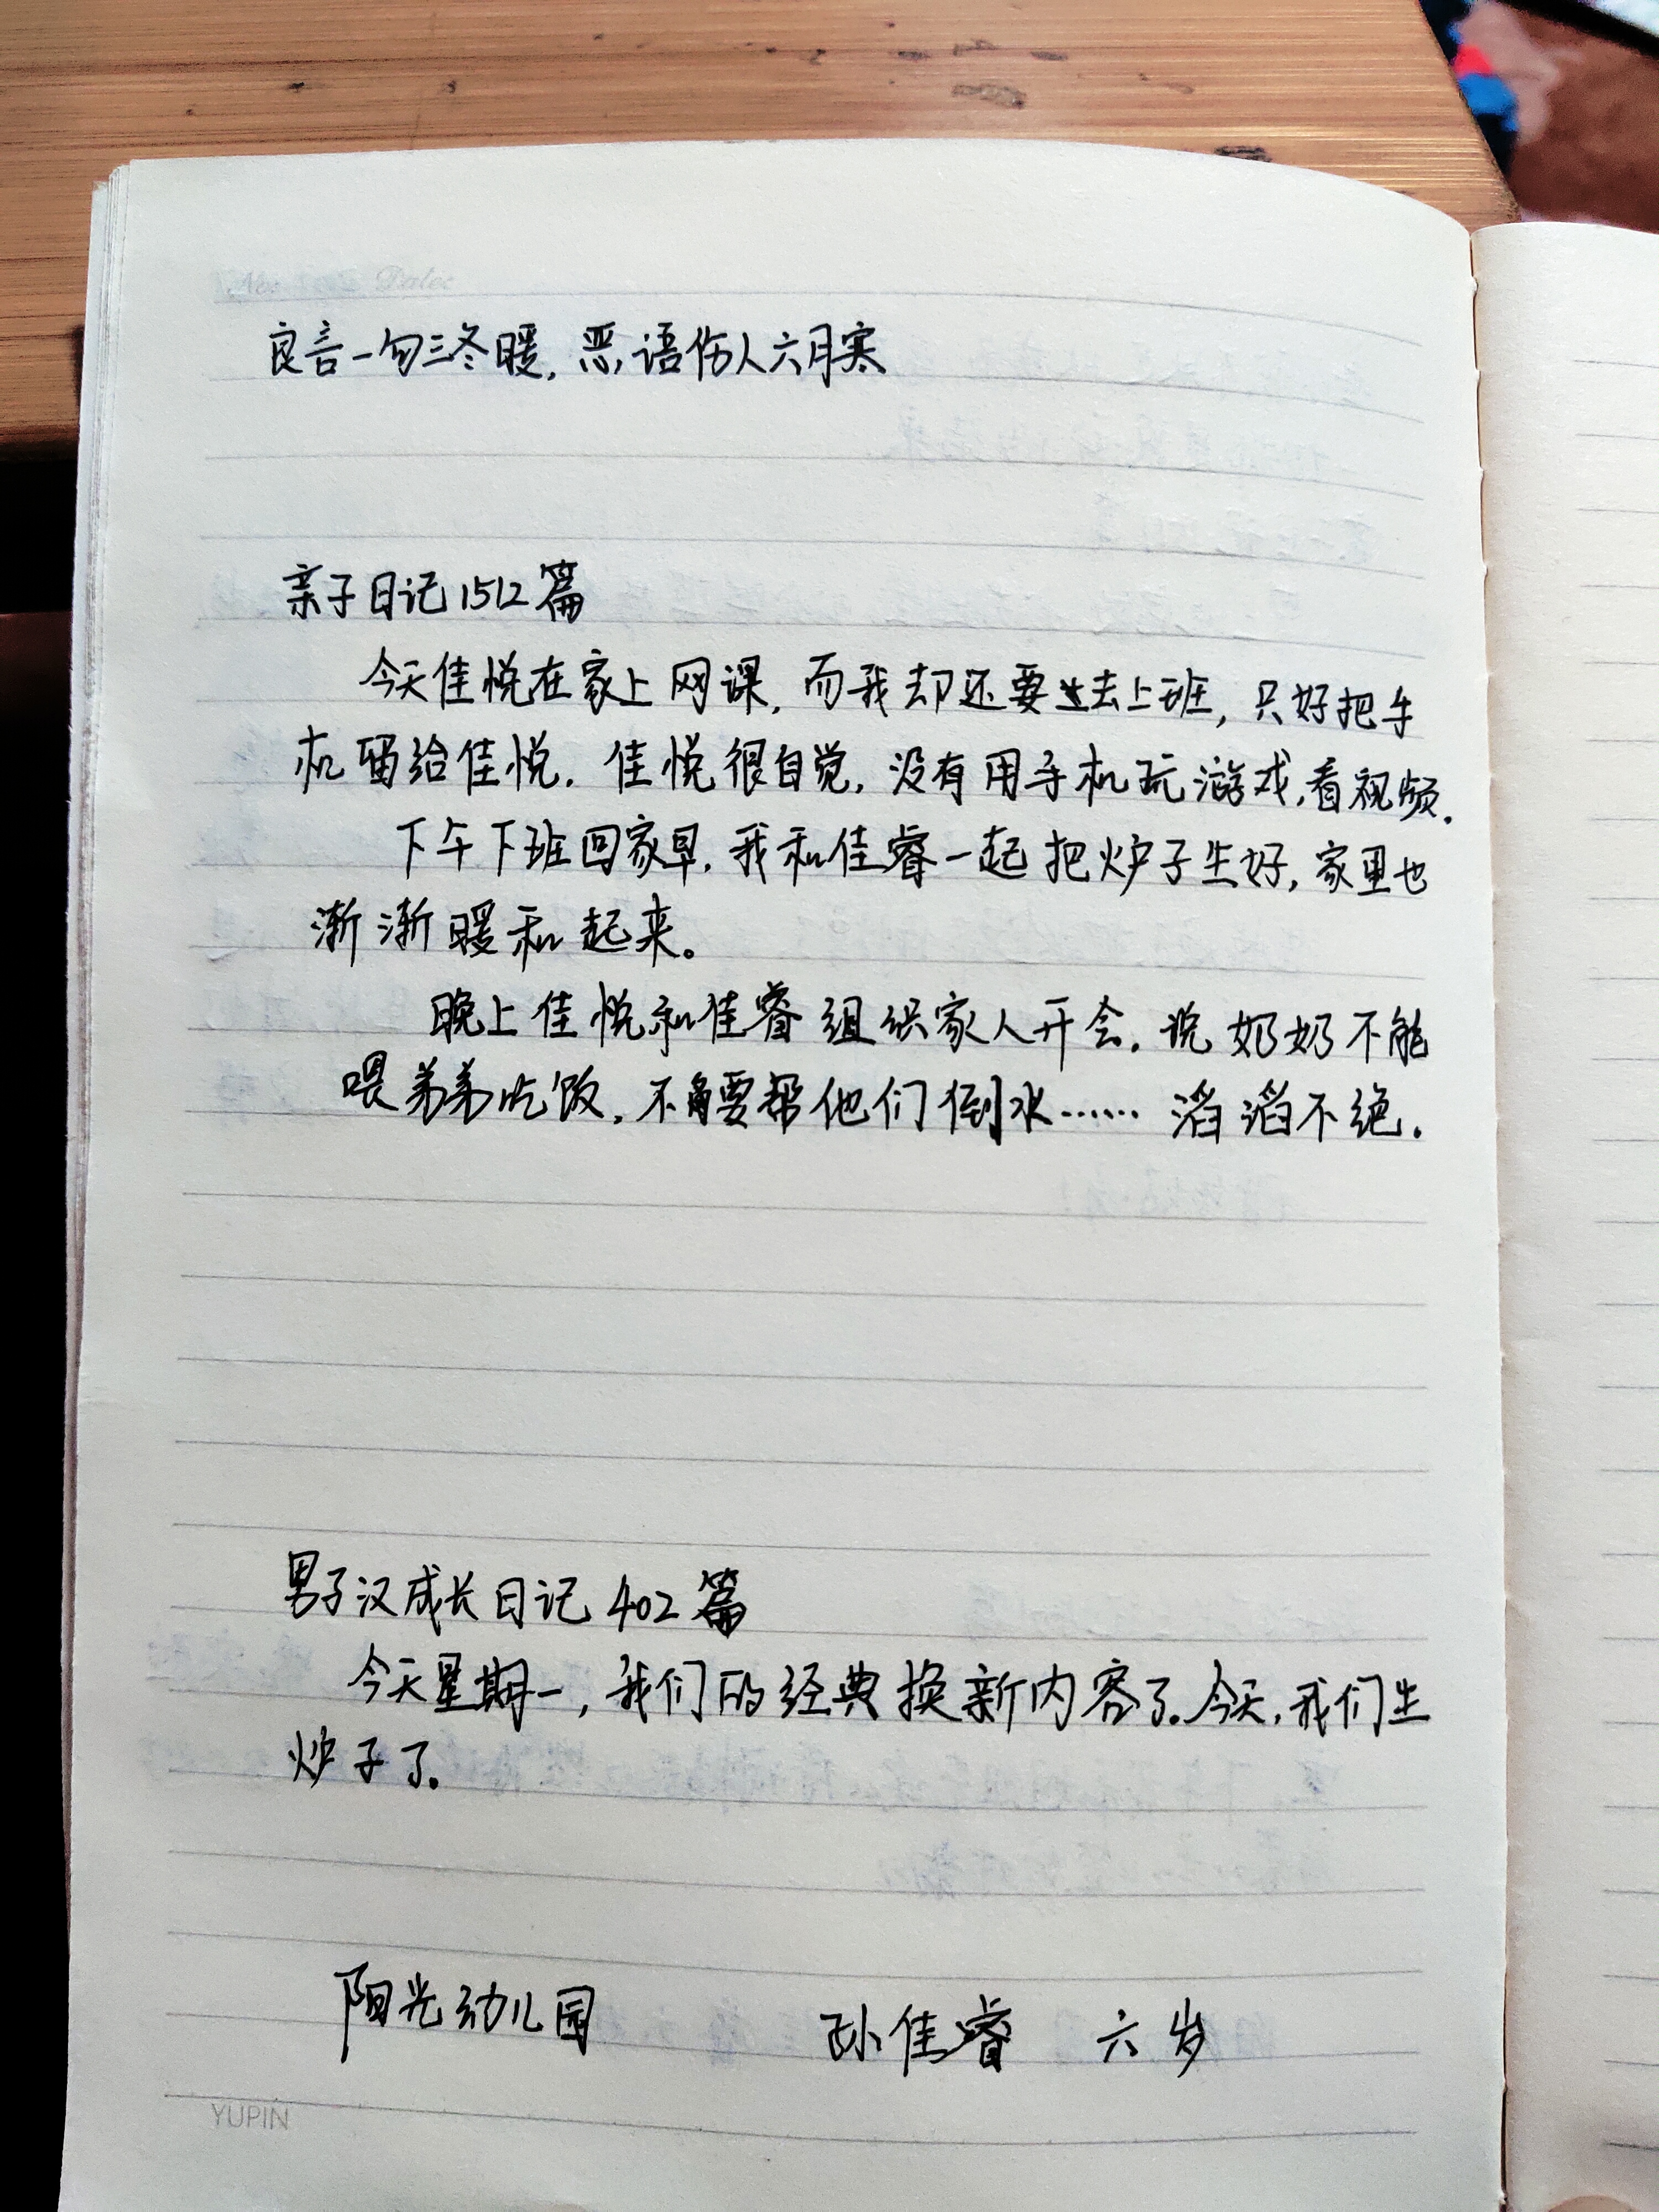 No: Date:
良言一句三冬暖,恶语伤人六月寒
亲子日记1512篇
今天佳悦在家上网课,而我却还要过去上班,只好把手
机留给佳悦.佳悦很自觉,没有用手机玩游戏,看视频.
下午下班回家早.我和佳睿一起把炉子生好,家里也
渐渐暖和起来。
晚上佳悦和佳睿组织家人开会.说奶奶不能
喂弟弟吃饭,不要帮他们倒水……滔滔不绝.
男子汉成长日记402篇
今天星期一,我们的经典换新内容了.今天,我们生
炉子了.
阳光幼儿园 孙佳睿 六岁
YUPIN